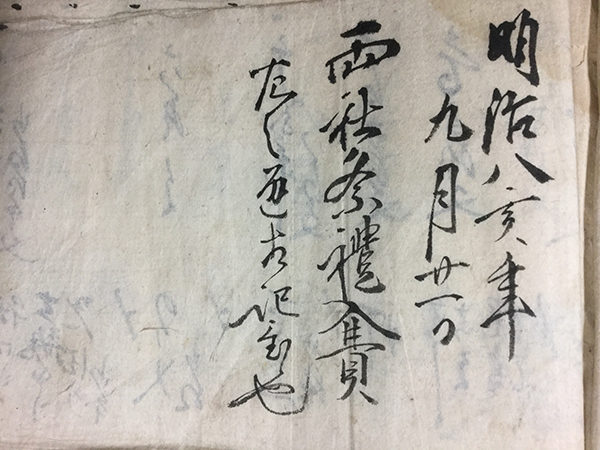 明治八亥年
九月廿一日
両社祭禮入費
左之通相記置也